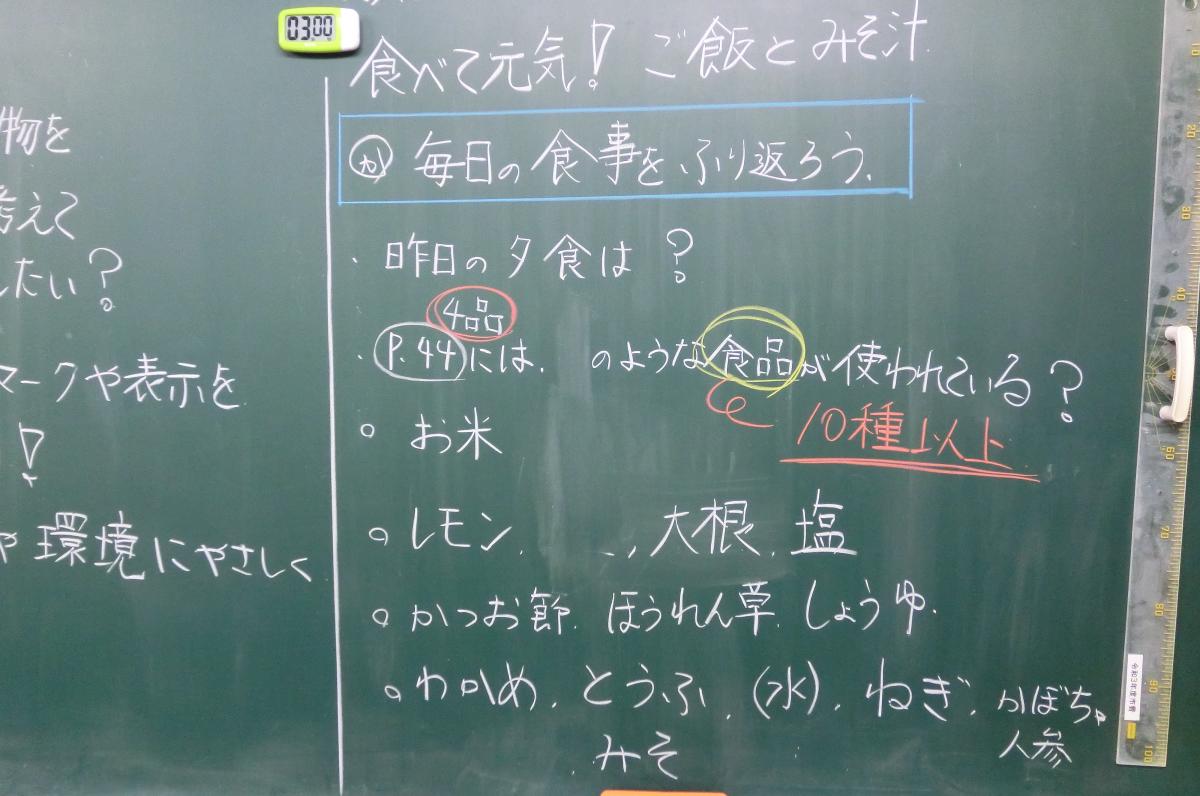 03 00
食べて元気! ご飯とみそ汁
か 毎日の食事をふり返ろう.
・昨日の夕食は?
4品
・P.44には. のような食品が使われている?
10種以上
○ お米
○ レモン. 、大根. 塩
○ かつお節. ほうれん草. しょうゆ.
○ わかめ. とうふ. (水). ねぎ. かぼちゃ
人参
みそ
物を
考えて
したい?
マークや表示を
!
や環境にやさしく
10
20
30
40
60
70
80
90
100